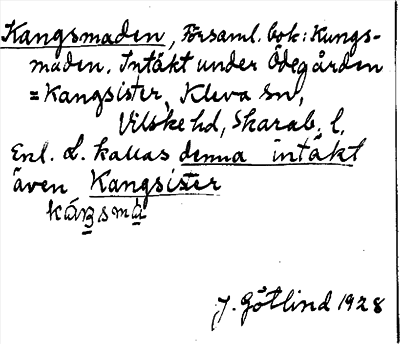 Kangsmaden, Församl. bok: Kungs-
maden. Intäkt under Ödegården
= Kangsister, Kleva sn,
Vilske hd, Skarab. l.
Enl. L. kallas denna intäkt
även Kangsister
J. Götlind 1928